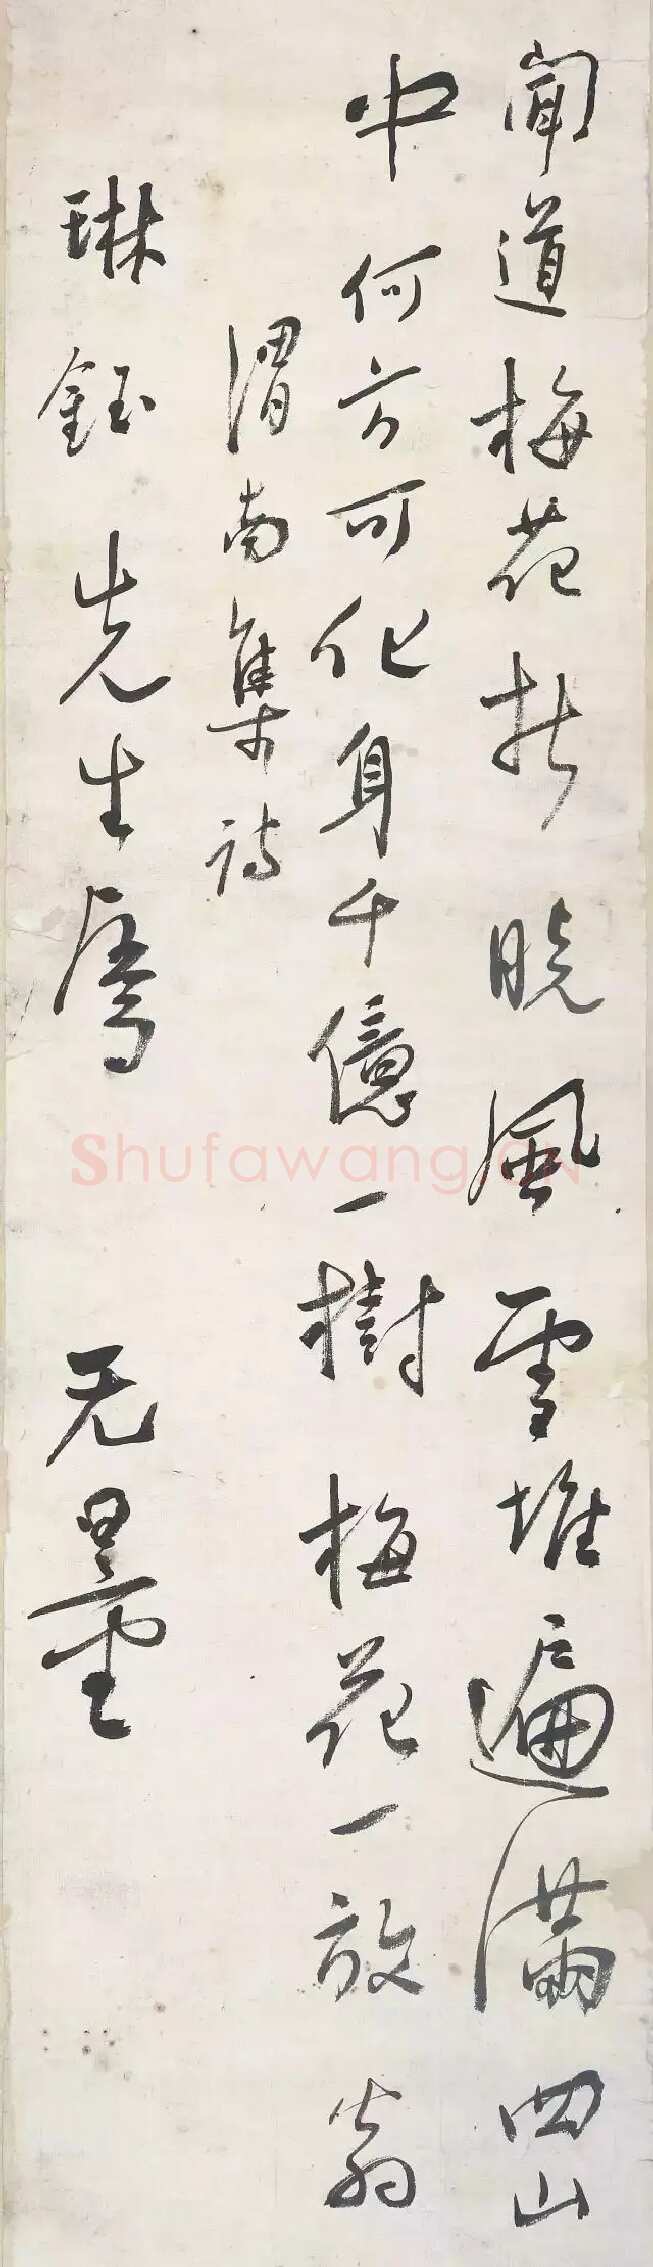 闻道梅花拆晓风雪堆遍满四山
中何方可化身千億一樹梅花一放翁
渭南集诗
琳鈺先生属
无量
Shufawang.CN